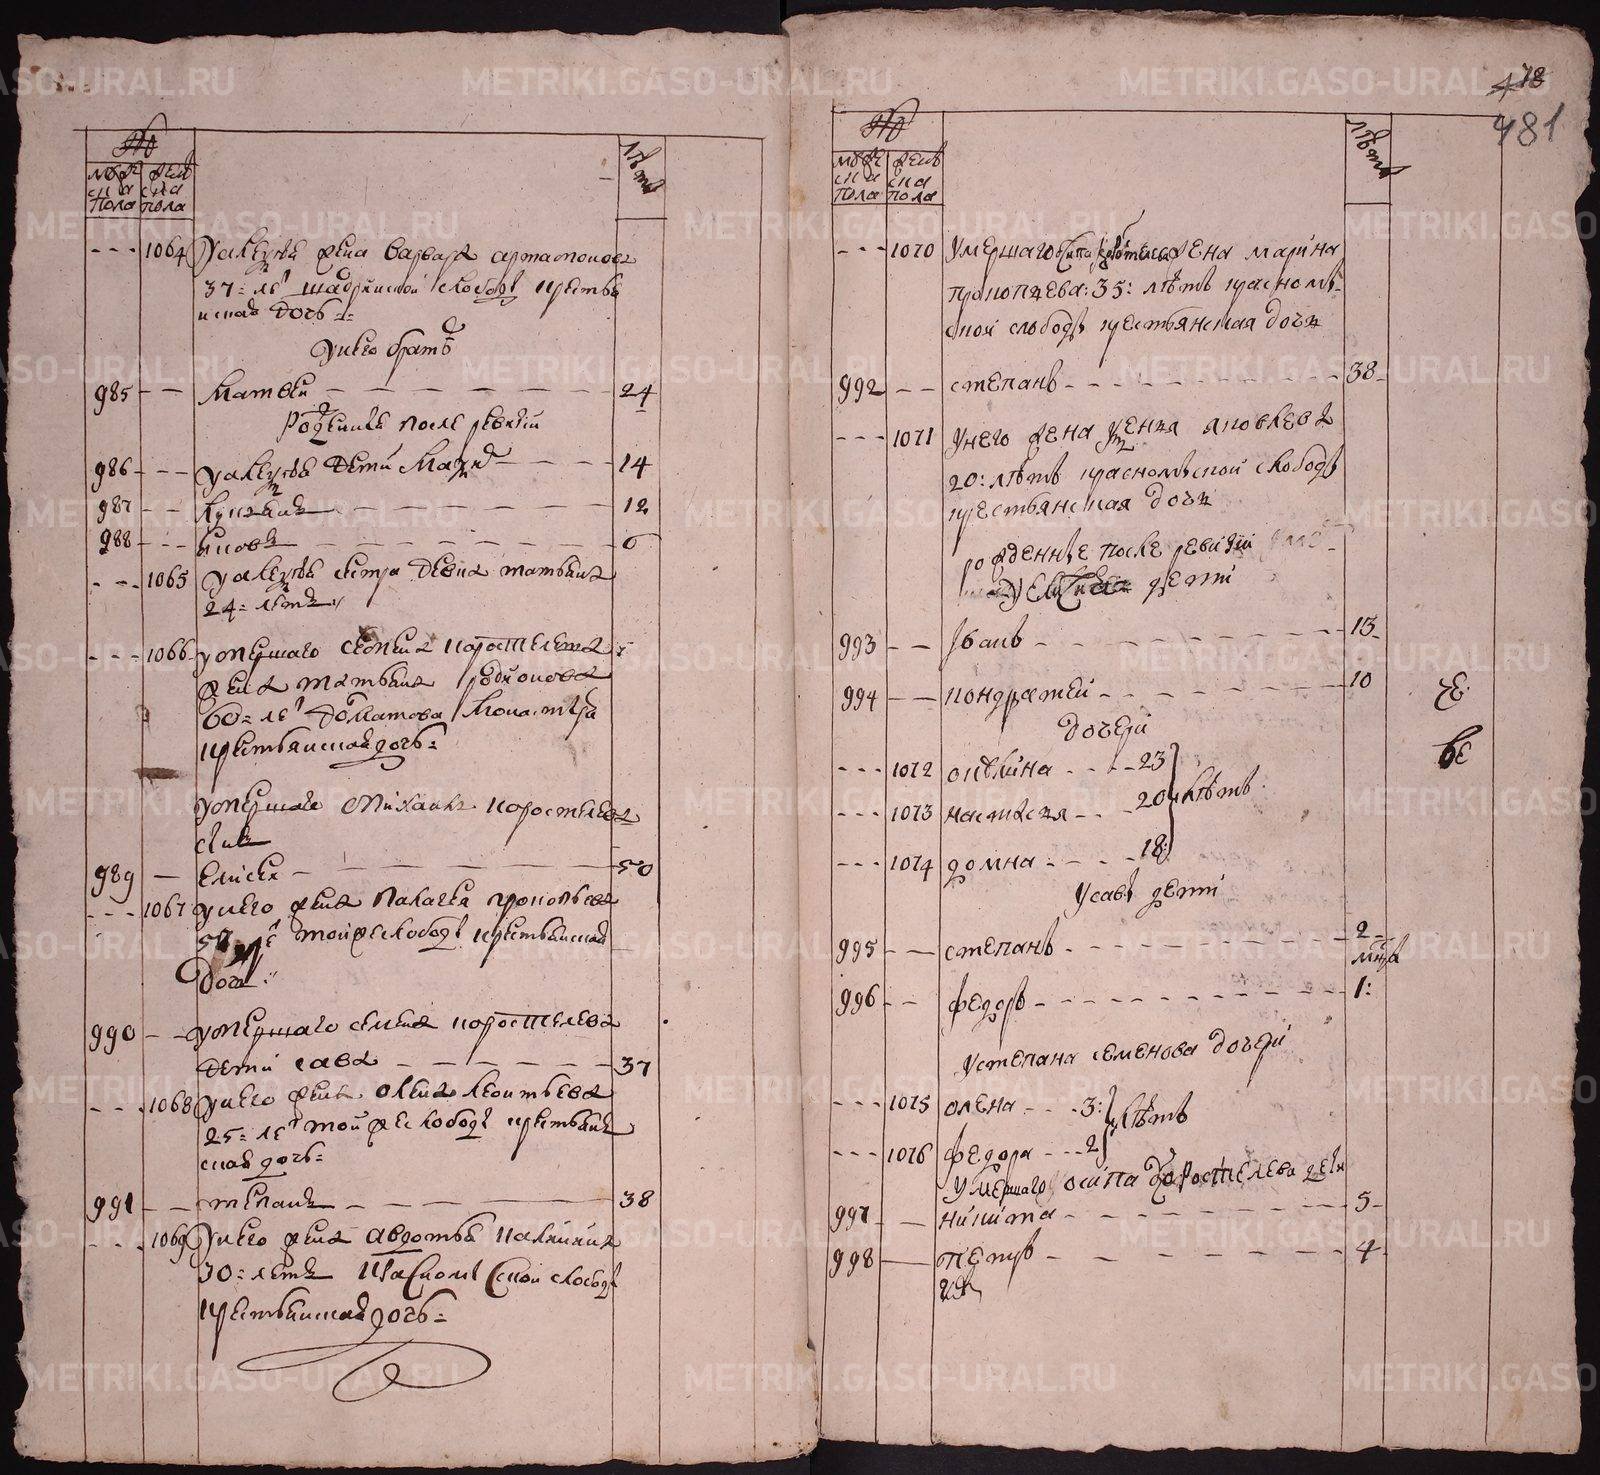 №
муже
ска
пола
женс
ска
пола
лѣта
1064 у алексѣя жена варвара артамонова
37 = ле шадринской слободы крестья
нская дочь =
у него братъ
985 Матвеи 24
Рожденные после ревизии
986 у алексѣя дети 14
987 12
988 яковъ 6
1065 у алексѣя сестра девка татьяна
24 = летъ
1066 умершаго семена коростелева
жена татьяна родионова
60 = ле далматова монастыря
крестьянская дочь =
умершаго михаила коростелева
сынъ
989 Елисей 50
1067 у него жена Палагея прокопьева
50 ле той же слободы крестьянская
дочь
990 умершаго семена коростелева
дети сава 37
1068 у него жена олена леонтьева
25 = ле той же слободы крестьян
ская дочь =
991 степанъ 38
1069 у него жена авдотья
30 = летъ красномыской слободы
крестьянская дочь =
478
481
№
муже
ска
пола
женс
ска
пола
лѣта
1070 умершаго осипа коростелева жена марина
прокопьева : 35 : лѣтъ красномы
ской слободы крестьянская дочь
992 степанъ 38
1071 у него жена яковлева
20 : лѣтъ красномыской слободы
крестьянская дочь
рожденные после ревизии
у дети
993 Иванъ 15
994 кондратей 10
дочери
1072 окулина 23
1073 настасья 20 лѣтъ
1074 домна 18
у савы дети
995 степанъ 2
мца
996 федоръ 1 :
у степана семенова дочери
1075 олена 3 : лѣтъ
1076 федора 2
умершаго осипа коростелева дети
997 никита 5
998 петръ 4